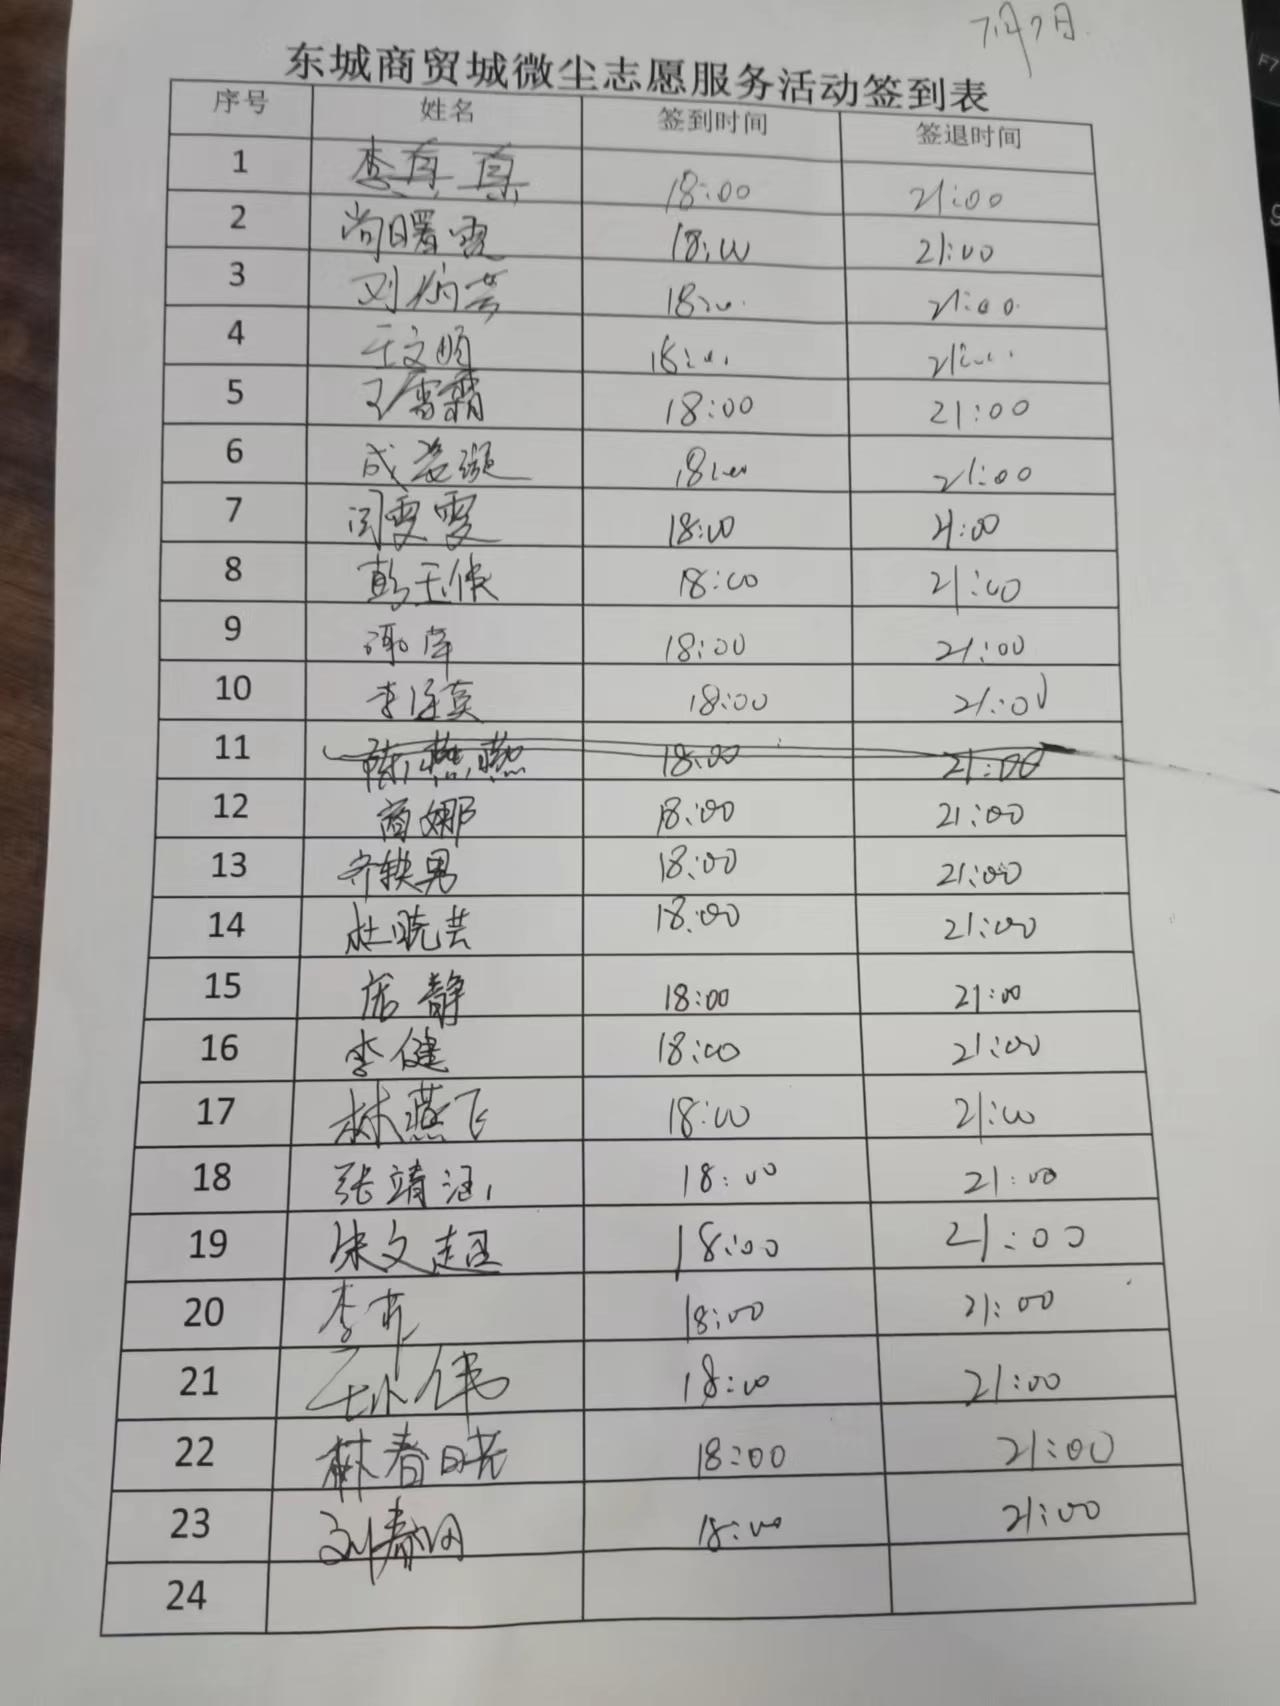 7月7日
东城商贸城微尘志愿服务活动签到表
序号 姓名 签到时间 签退时间
1 李真真 18:00 21:00
2 尚曙霞 18:00 21:00
3 刘炳芳 18:00 21:00
4 王文顺 18:00 21:00
5 王雪霜 18:00 21:00
6 成 18:00 21:00
7 闫雯雯 18:00 21:00
8 彭玉俠 18:00 21:00
9 18:00 21:00
10 李 18:00 21:00
11 陈燕燕 18:00 21:00
12 商娜 18:00 21:00
13 齐轶男 18:00 21:00
14 杜晓芸 18:00 21:00
15 静 18:00 21:00
16 李健 18:00 21:00
17 林燕飞 18:00 21:00
18 张靖涵 18:00 21:00
19 宋文超 18:00 21:00
20 李 18:00 21:00
21 王小伟 18:00 21:00
22 林春晓 18:00 21:00
23 刘春 18:00 21:00
24